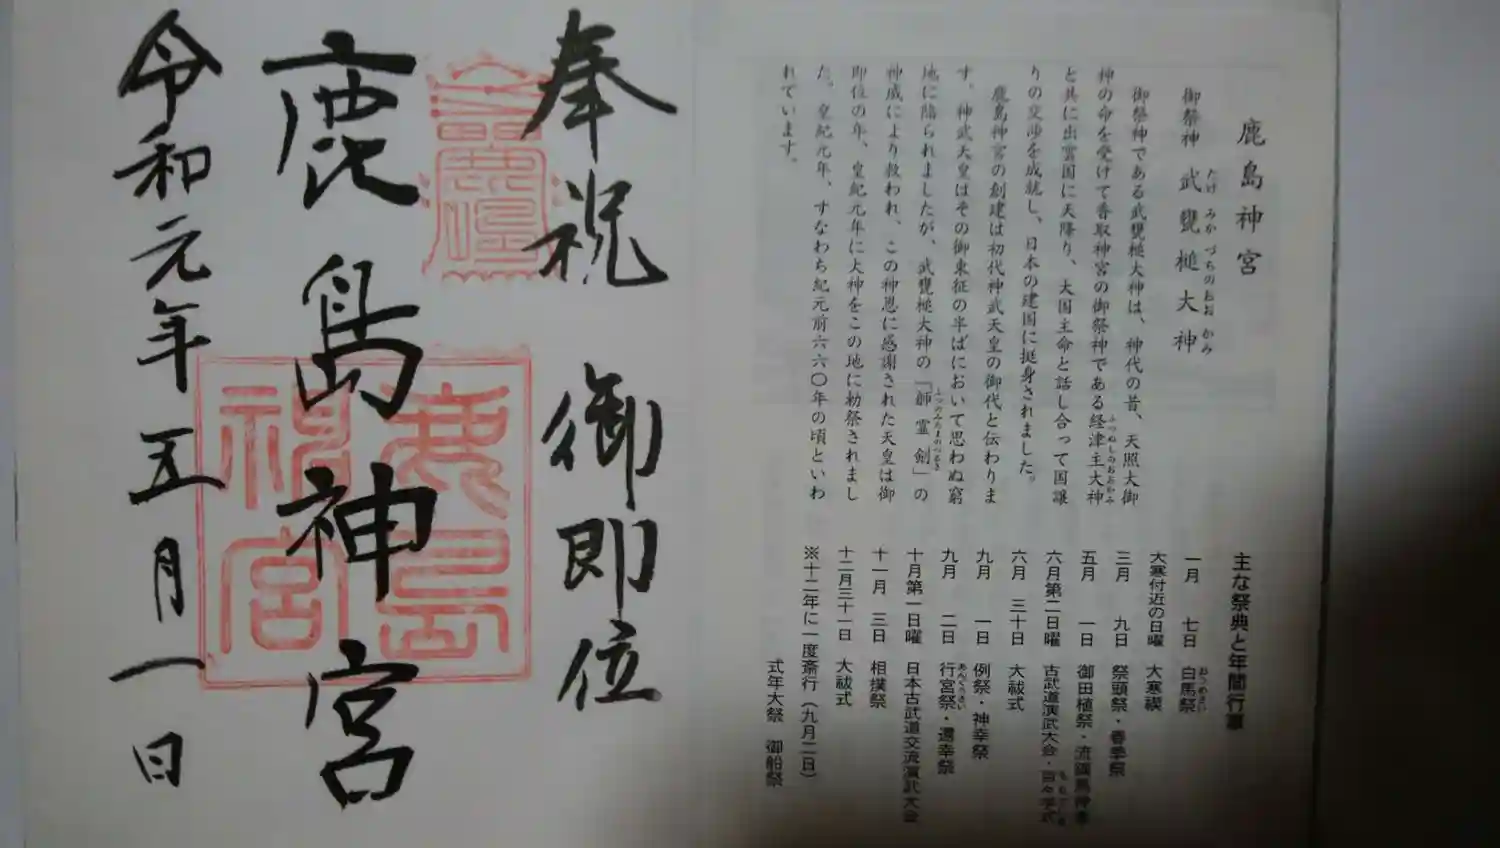 鹿島神宮
御祭神 武甕槌大神
たけ みか づちのおお かみ
御祭神である武甕槌大神は、神代の昔、天照大御
神の命を受けて香取神宮の御祭神である経津主大神
ふつぬしのおおかみ
と共に出雲国に天降り、大国主命と話し合って国譲
りの交渉を成就し、日本の建国に挺身されました。
鹿島神宮の創建は初代神武天皇の御代と伝わりま
す。神武天皇はその御東征の半ばにおいて思わぬ窮
地に陥られましたが、武甕槌大神の「韴霊剣」の
ふつのみたまのつるぎ
神威により救われ、この神恩に感謝された天皇は御
即位の年、皇紀元年に大神をこの地に勅祭されまし
た。皇紀元年、すなわち紀元前六六〇年の頃といわ
れています。
主な祭典と年間行事
一月 七日 白馬祭
おうめさい
大寒付近の日曜 大寒禊
三月 九日 祭頭祭・春季祭
五月 一日 御田植祭・流鏑馬神事
六月第二日曜 古武道演武大会・
六月 三十日 大祓式
九月 一日 例祭・神幸祭
九月 二日 行宮祭・還幸祭
あんぐうさい
十月第一日曜 日本古武道交流演武大会
十一月 三日 相撲祭
十二月三十一日 大祓式
※十二年に一度斎行(九月二日)
式年大祭 御船祭
奉祝 御即位
鹿島神宮
令和元年五月一日
鹿島
神宮